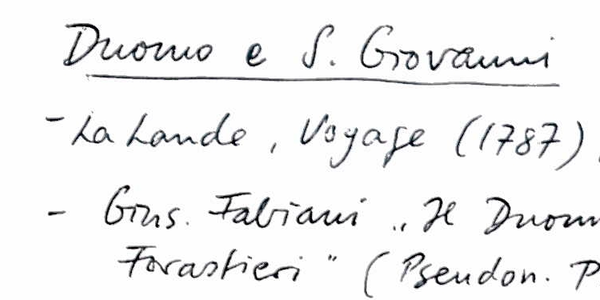 Duomo e S. Giovanni
- La Lande, Voyage (1787),
- Gius. Fabiani „Il Duom
Forastieri" (Pseudon. P